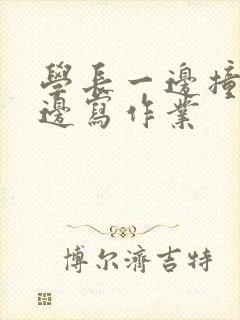 學長一邊撞
邊寫作業
博尔濟吉特